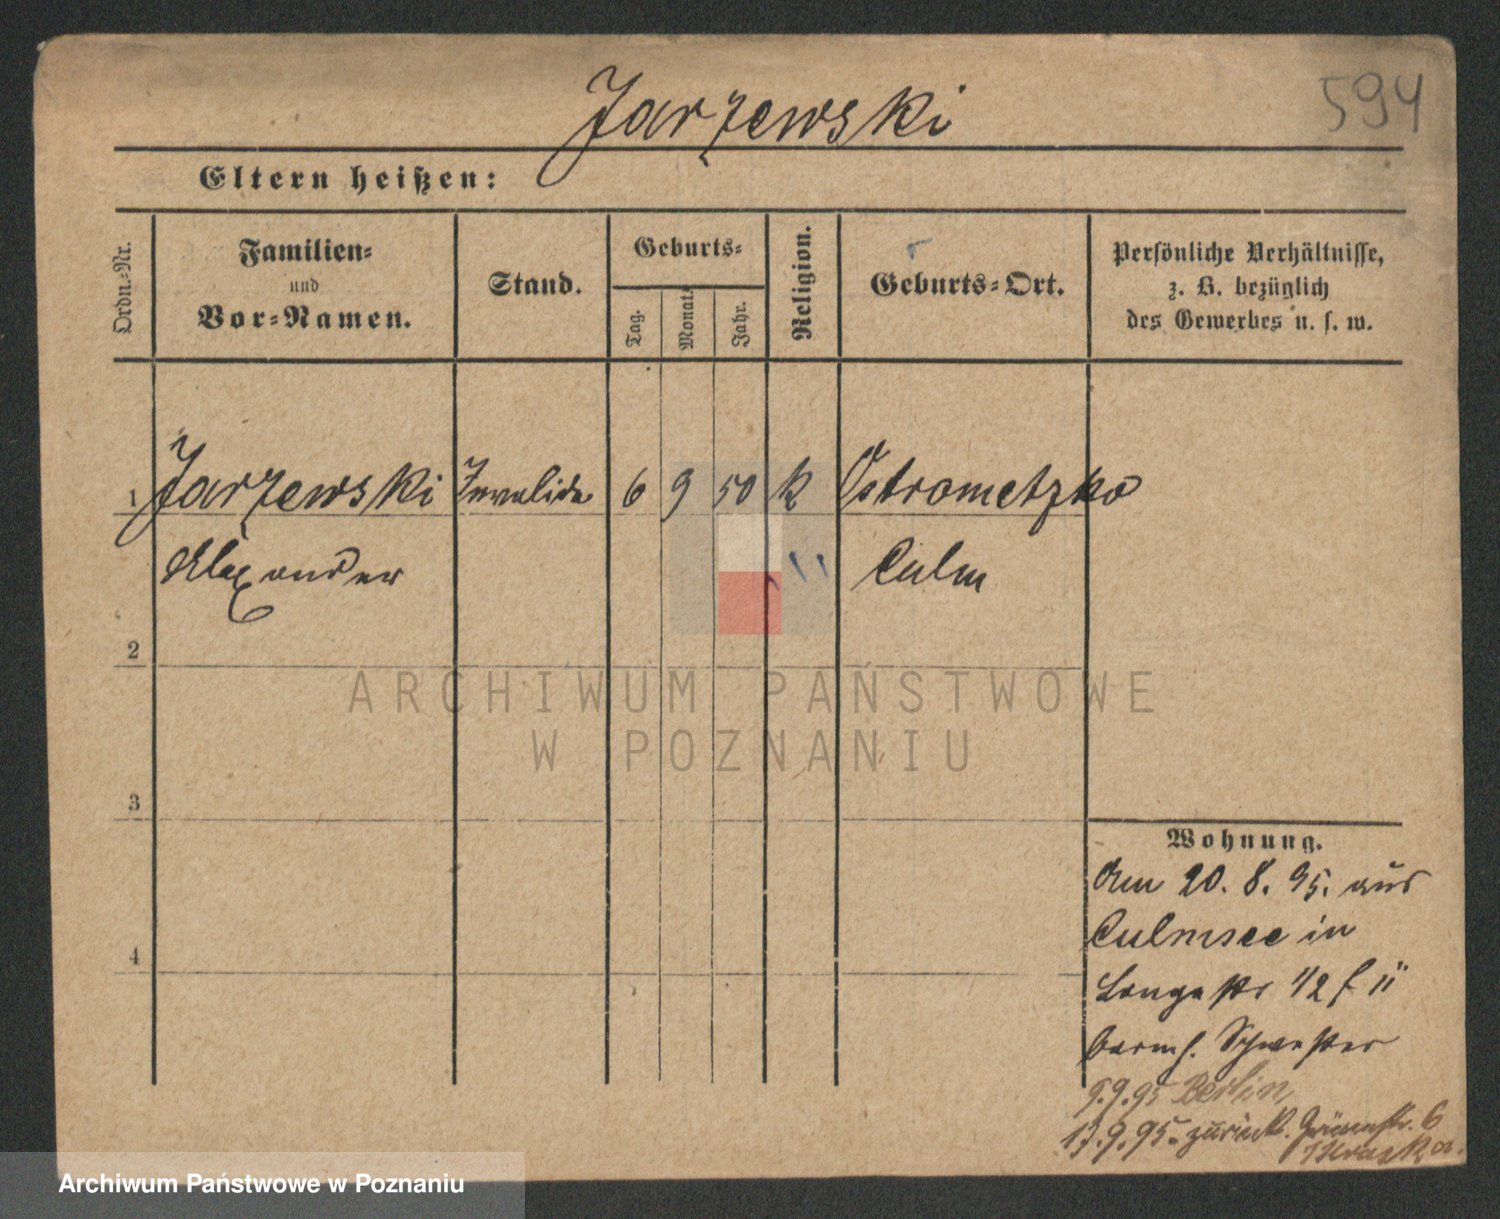 594
Jarzewski
Eltern heißen:
Ordn.-Nr.
Familien-
und
Vor-Namen.
Stand.
Geburts-
Tag.
Monat.
Jahr.
Religion.
Geburts-Ort.
Persönliche Verhältnisse,
z. B. bezüglich
des Gewerbes u. s. w.
1 Jarzewski Invalide 6 9 50 k Ostrometzko
Alexander Culm
2
ARCHIWUM PAŃSTWOWE
W POZNANIU
3
4
Wohnung.
Am 20. 8. 95. aus
Culmsee in
Langestr 1/2 f II
barmh. Schwester
9.9.95 Berlin
17.9.95. zurück. Grünestr. 6
Archiwum Państwowe w Poznaniu